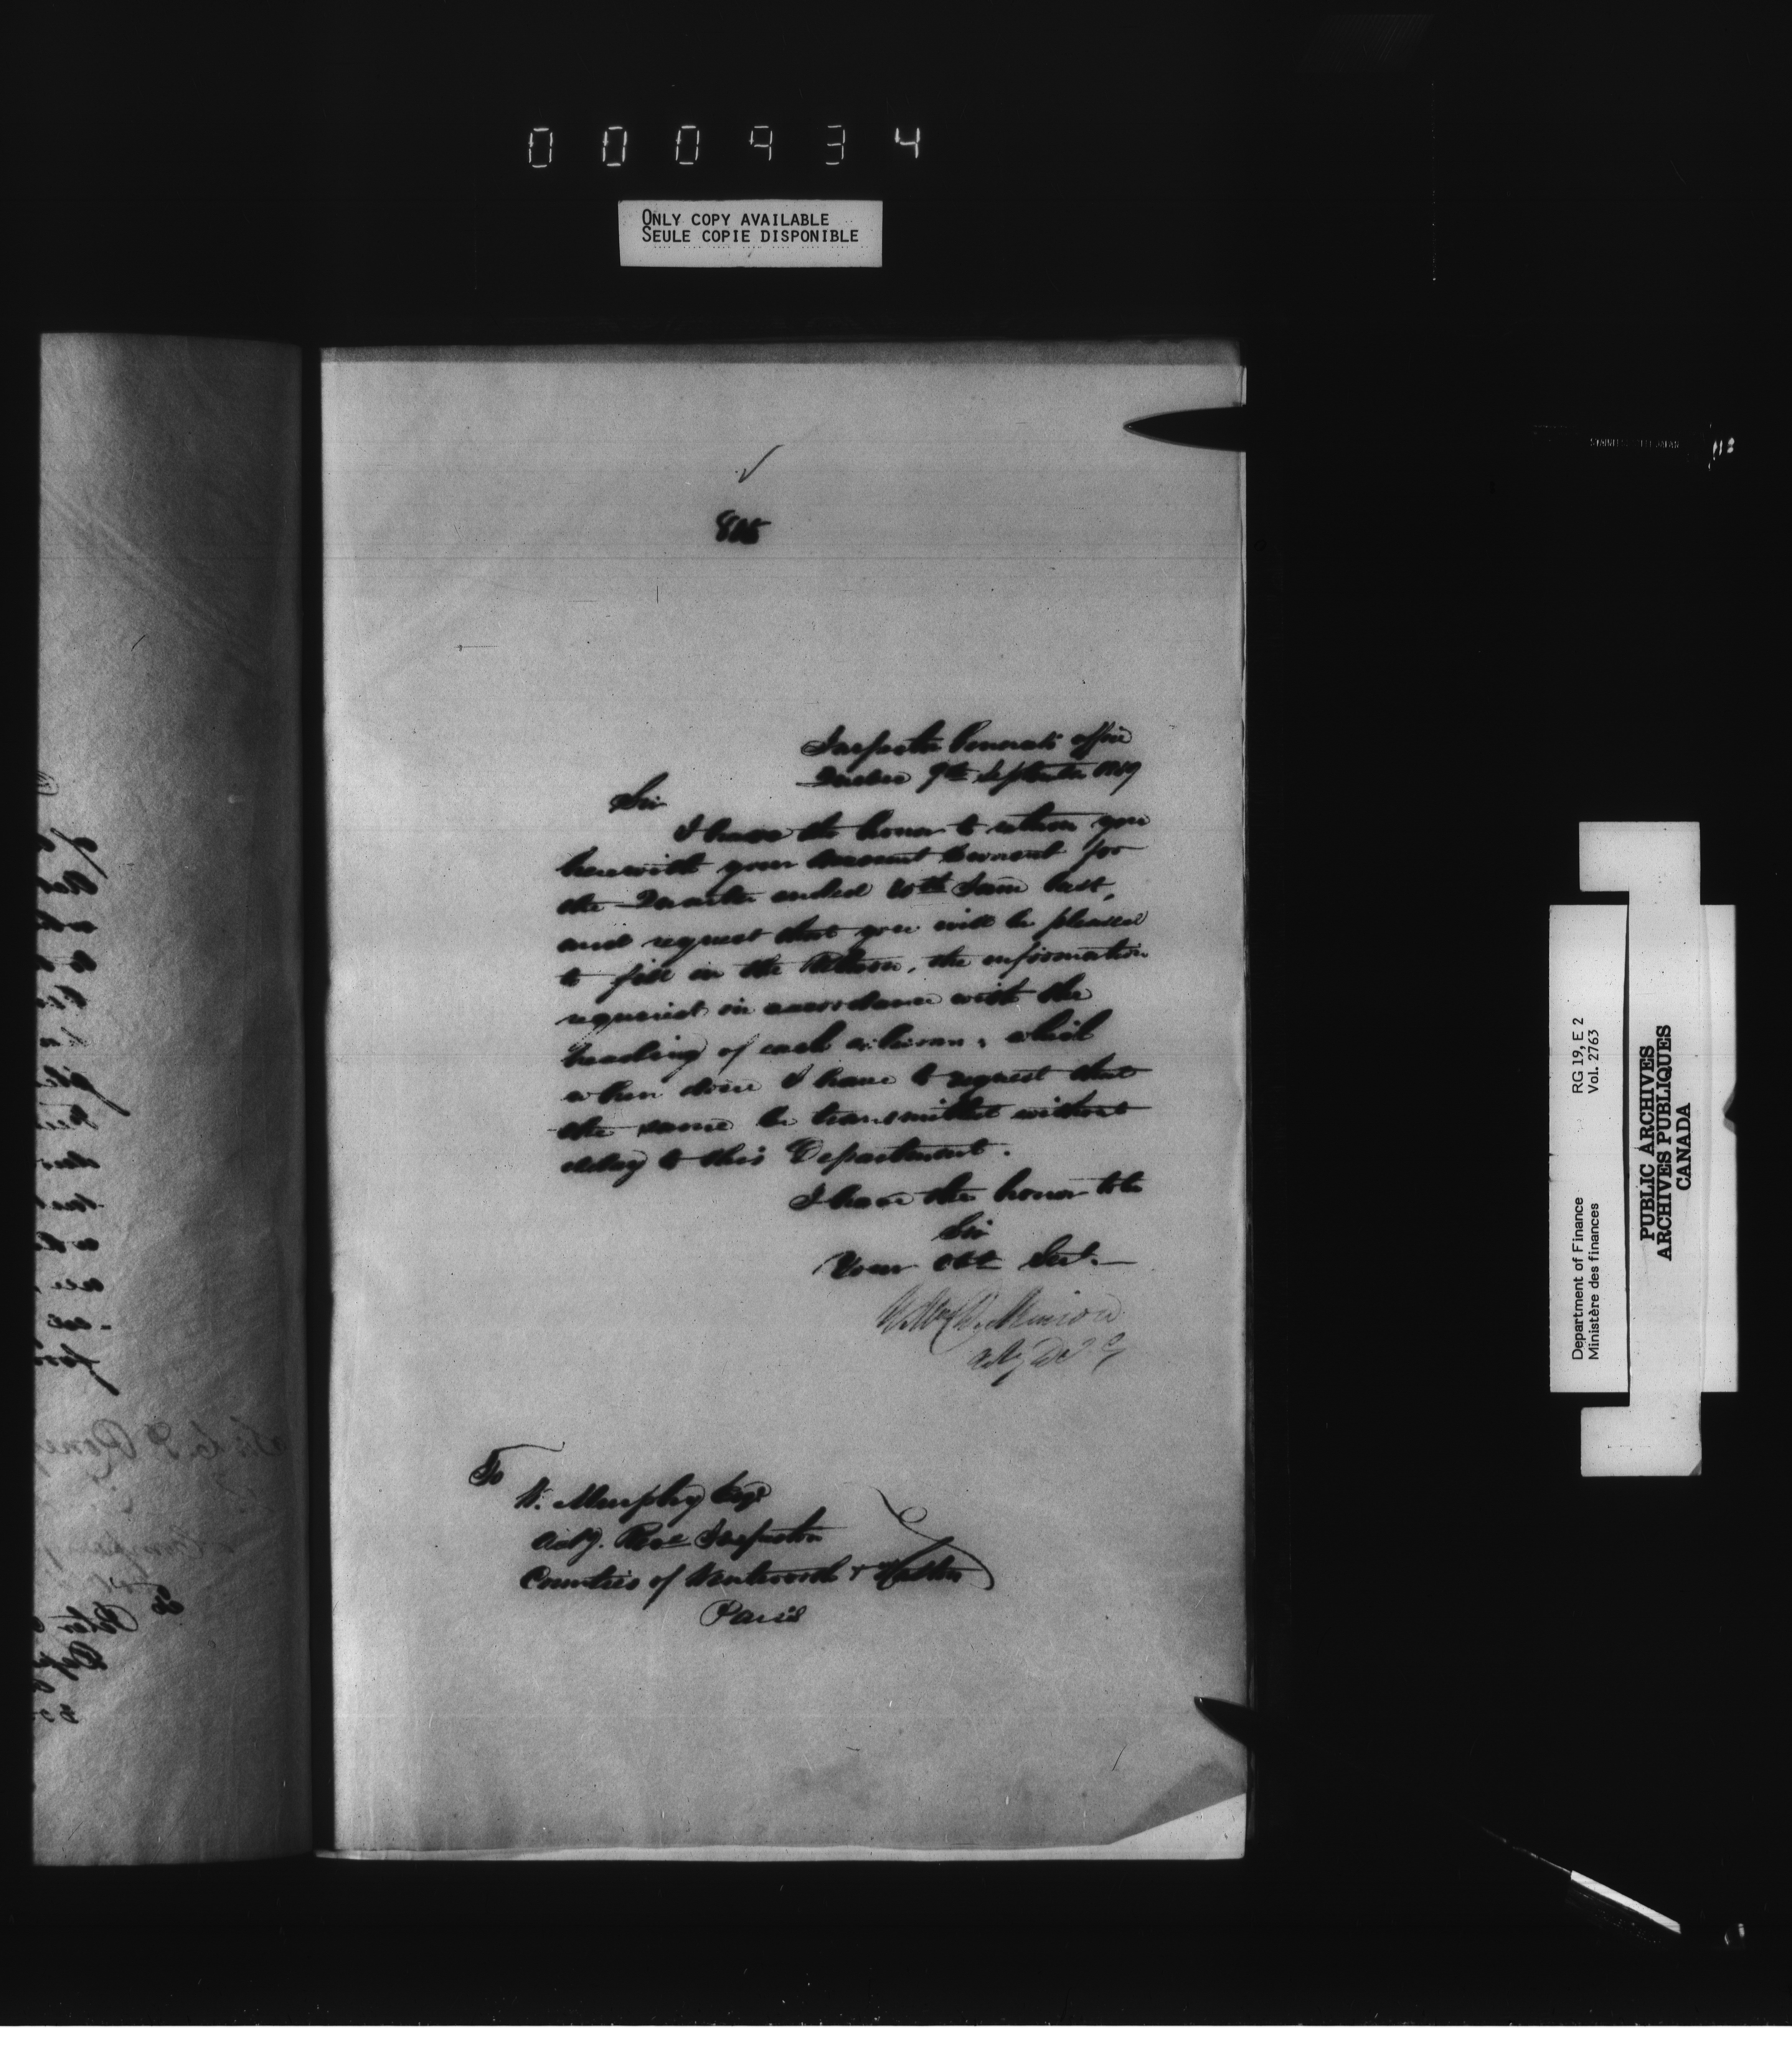 000934
ONLY COPY AVAILABLE
SEULE COPIE DISPONIBLE
Inspector Generals office
Quebec 9th September
Sir
I have the honor to return you
herewith your Account Current for
the Quarter ended last,
and request that you will be pleased
to fill in the Return, the information
required in accordance with the
heading of each column, which
when done I have to request that
the same be transmitted without
delay to this Department.
I have the honor to be
Sir
Your Obt Sert.
To
Murphy Esqr
Actg. Rev Inspector
Counties of Wentworth & Halton
Paris
Department of Finance RG 19, E 2
Ministère des finances Vol. 2763
PUBLIC ARCHIVES
ARCHIVES PUBLIQUES
CANADA